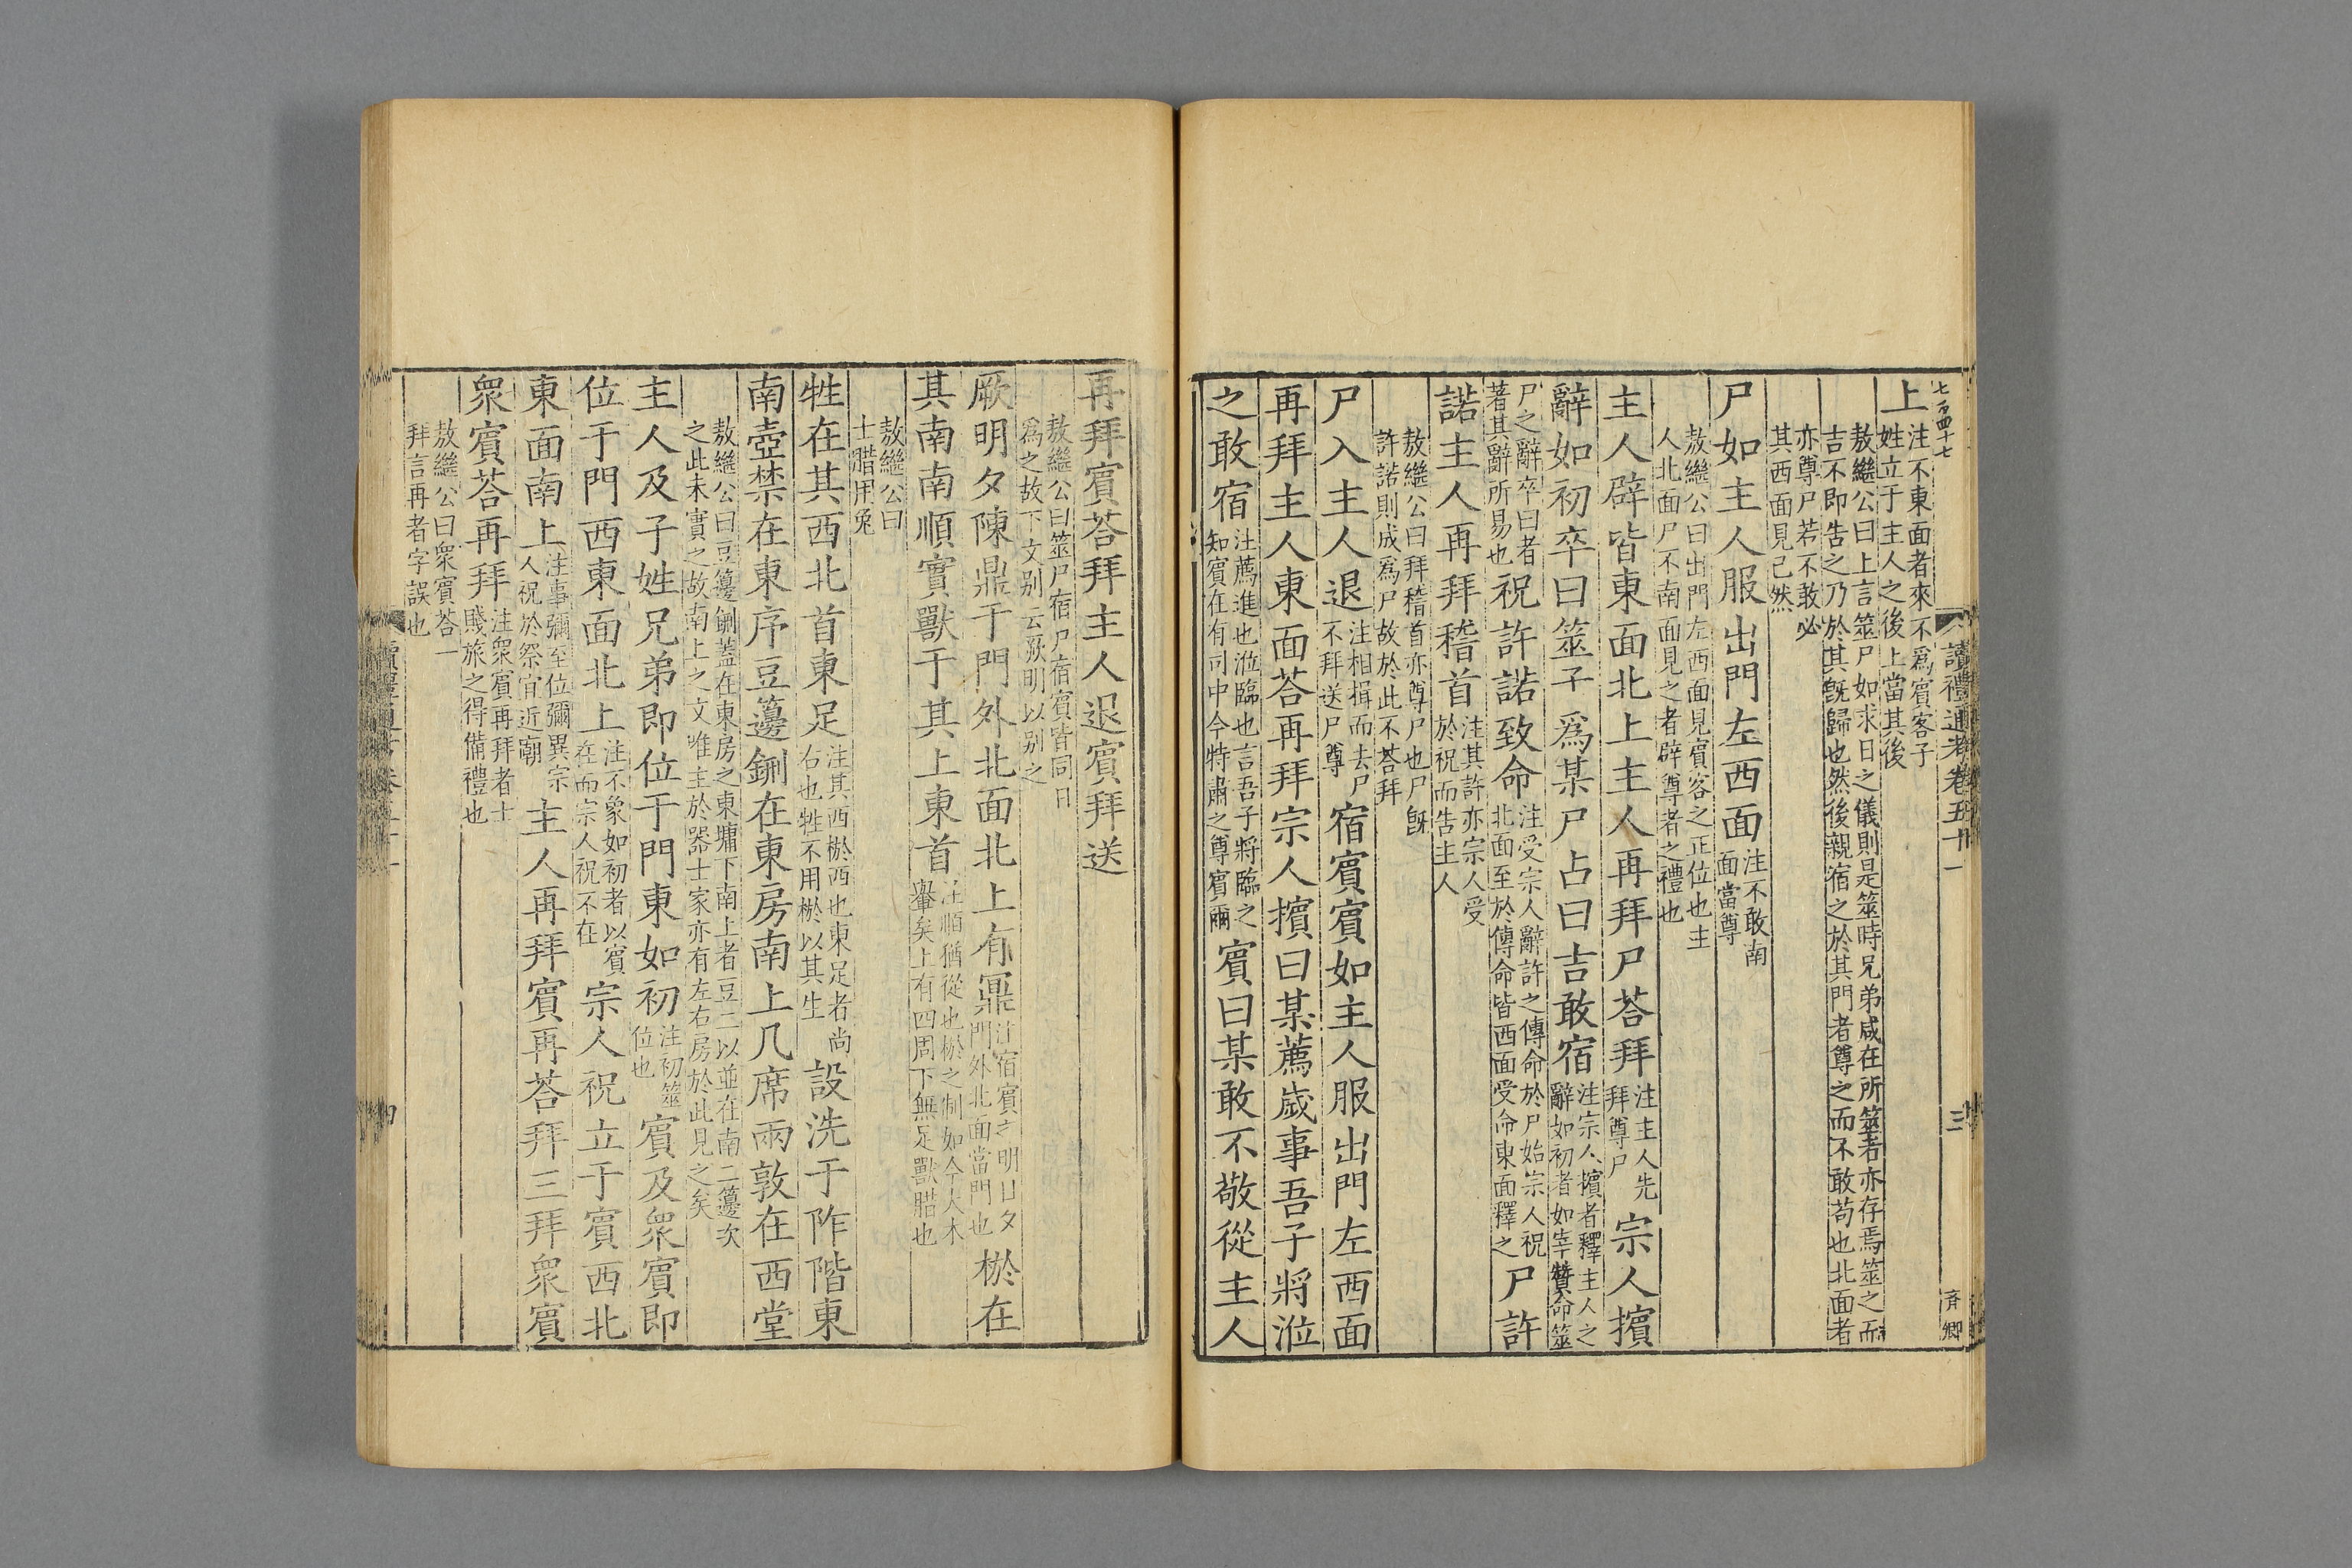 七百四十七
讀禮通考卷五十一
三
斉卿
上注不東面者來不爲賓客子姓立于主人之後上當其後
敖繼公曰上言筮尸如求日之儀則是筮時兄弟咸在所筮者亦存焉筮之而
吉不即告之乃於其旣歸也然後親宿之於其門者尊之而不敢苟也北面者
亦尊尸若不敢必
其西面見已然
尸如主人服出門左西面注不敢南面當尊
敖繼公曰出門左西面見賓客之正位也主
人北面尸不南面見之者辟尊者之禮也
主人辟皆東面北上主人再拜尸荅拜注主人先拜尊尸宗人擯
辭如初卒曰筮子爲某尸占曰吉敢宿注宗人擯者釋主人之辭如初者如宰贊命筮
尸之辭卒曰者著其辭所易也祝許諾致命注受宗人辭許之傳命於尸始宗人祝北面至於傳命皆西面受命東面釋之尸許
諾主人再拜稽首注其許亦宗人受於祝而告主人
敖繼公曰拜稽首亦尊尸也尸旣
許諾則成爲尸故於此不荅拜
尸入主人退注相揖而去尸不拜送尸尊宿賓賓如主人服出門左西面
再拜主人東面荅再拜宗人擯曰某薦歲事吾子將涖
之敢宿注薦進也涖臨也言吾子將臨之知賓在有司中今特肅之尊賓爾賓曰某敢不敬從主人
再拜賓荅拜主人退賓拜送
敖繼公曰筮尸宿尸宿賓皆同日
爲之故下文别云厥明以别之
厥明夕陳鼎于門外北面北上有鼏注宿賓之明日夕門外北面當門也棜在
其南南順實獸于其上東首注順猶從也棜之制如今大木轝矣上有四周下無足獸腊也
敖繼公曰
士腊用兔
牲在其西北首東足注其西棜西也東足者尚右也牲不用棜以其生設洗于阼階東
南壺禁在東序豆籩鉶在東房南上几席兩敦在西堂
敖繼公曰豆籩鉶蓋在東房之東墉下南上者二豆以並在南二籩次
之此未實之故南上之文唯主於器士家亦有左右房於此見之矣
主人及子姓兄弟即位于門東如初注初筮位也賓及衆賓即
位于門西東面北上注不象如初者以賓在而宗人祝不在宗人祝立于賓西北
東面南上注事彌至位彌異宗人祝於祭宜近廟主人再拜賓再荅拜三拜衆賓
衆賓荅再拜注衆賓再拜者士賤旅之得備禮也
敖繼公曰衆賓荅一
拜言再者字誤也